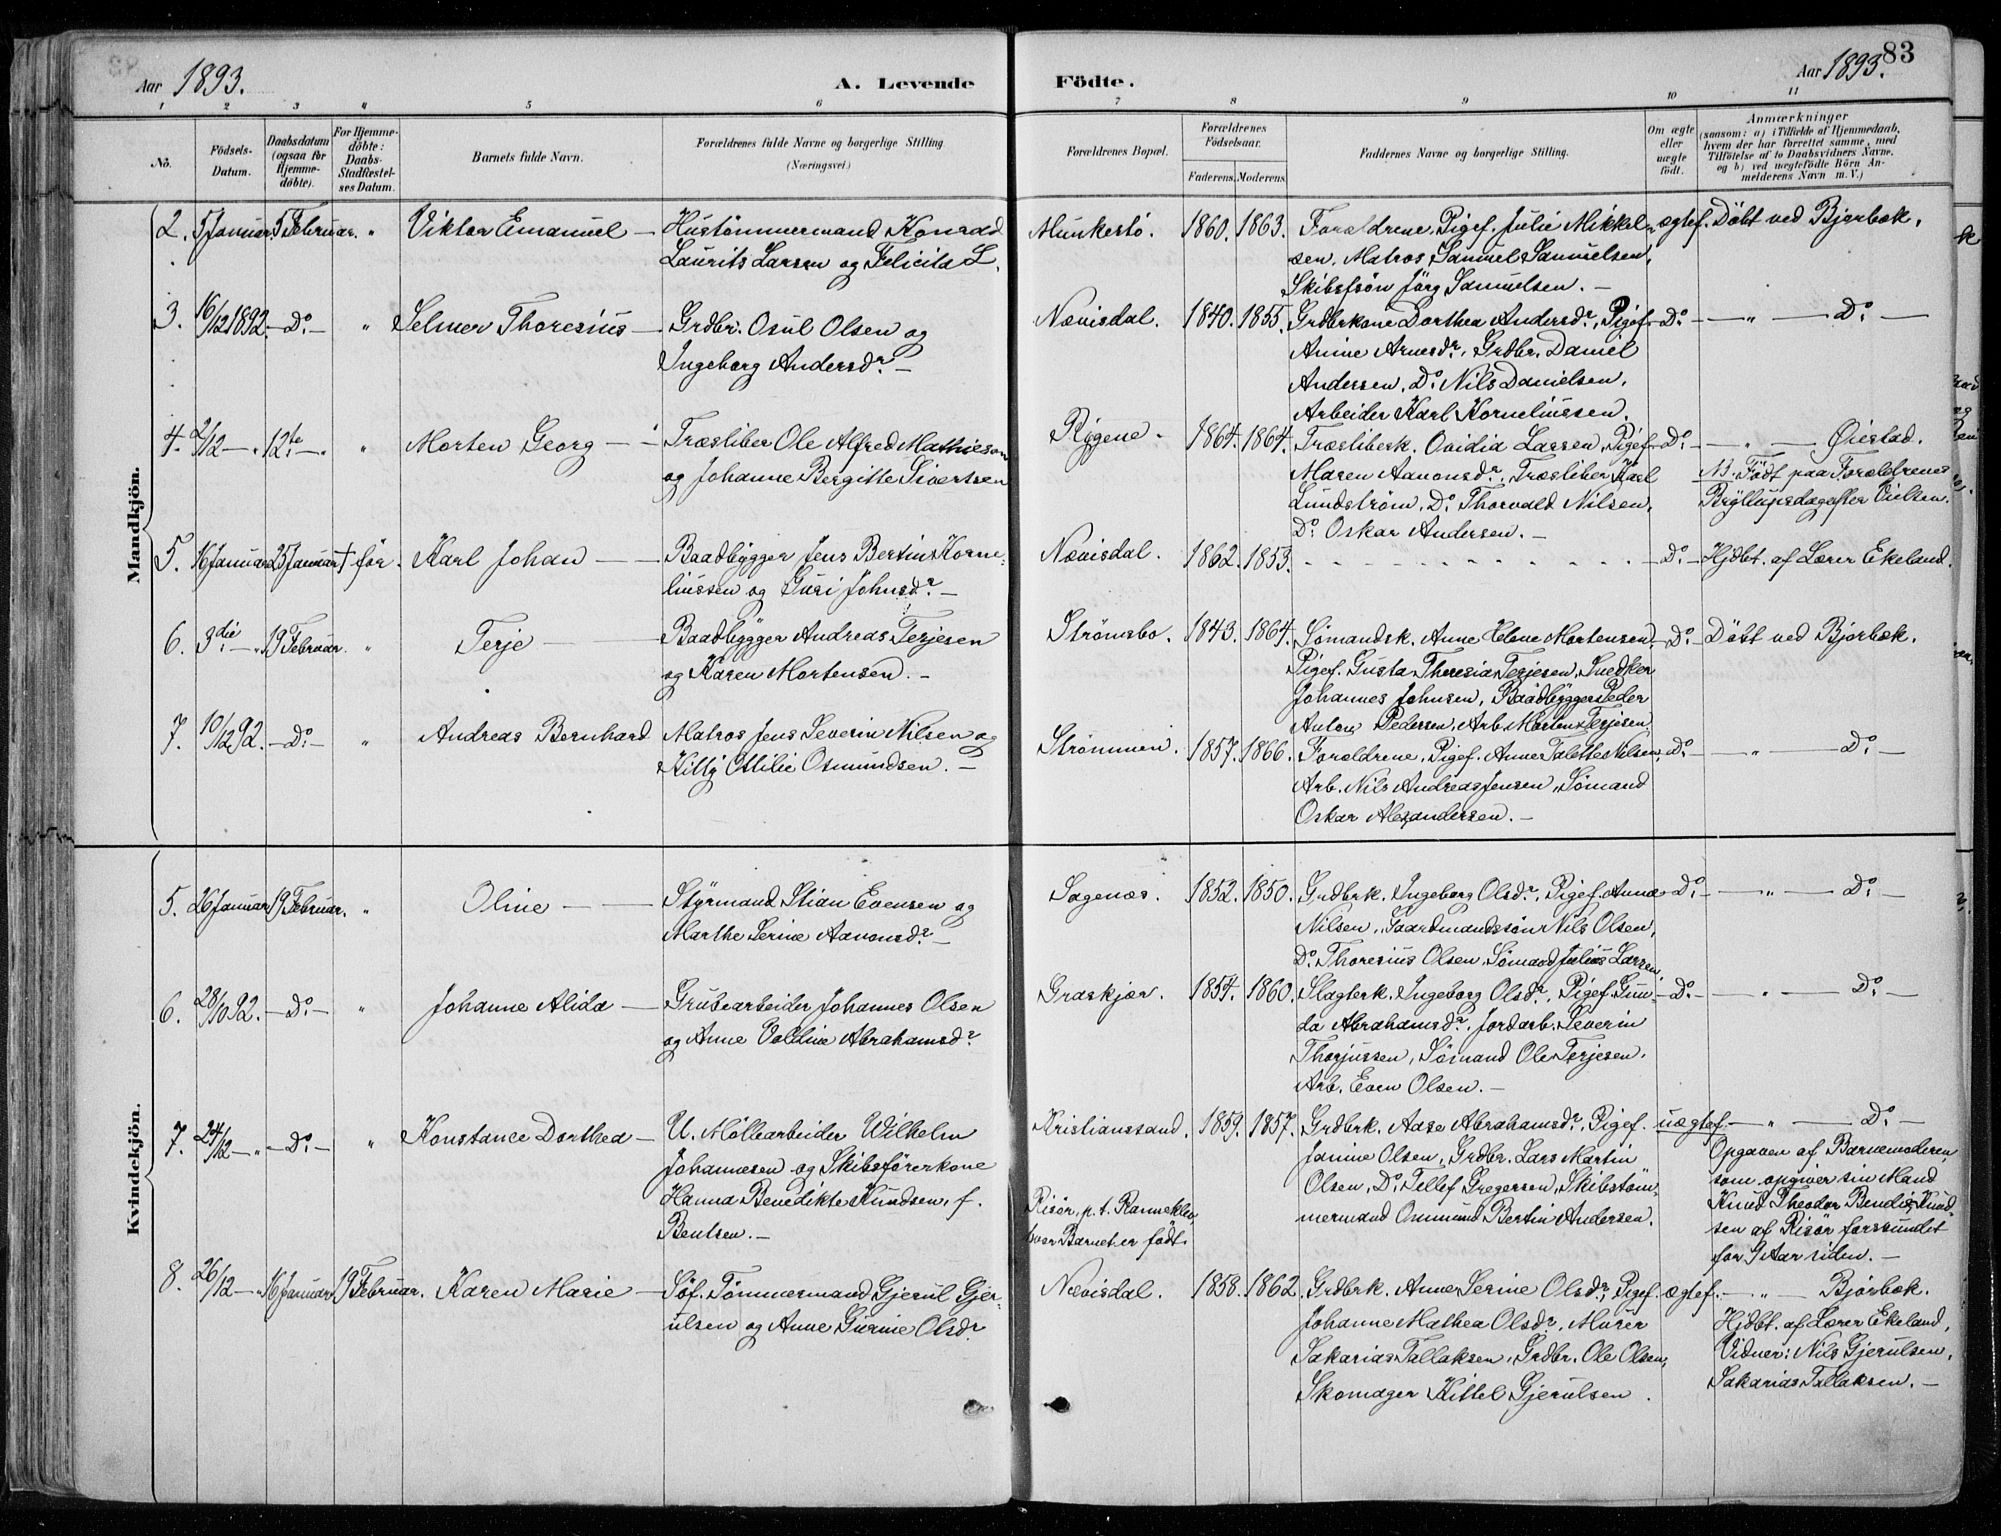 Aar 1893.
A. Levende
Födte.
Aar 1893.
83
1 2 3 " 5 6 7 8 9 10 11
No.
Födsels-
Datum.
Daabsdatum
(ogsaa for
Hjemme-
döbte).
For Hjemme-
döbte:
Daabs-
Stadfæstel-
ses Datum.
Barnets fulde Navn.
Forældrenes fulde Navne og borgerlige Stilling
(Næringsvei)
Forældrenes Bopæl.
Forældrenes
Födselsaar.
Faderens. Moderens.
Faddernes Navne og borgerlige Stilling.
Om ægte
eller
uægte
födt.
Anmærkninger
(saasom: a) i Tilfælde af Hjemmedaab,
hvem der har forrettet samme, med
Tilföielse af to Daabsvidners Navne.
og b) ved uægtefödte Börn An-
melderens Navn m. V.)
Mandkjön.
2. 5 Januar. 5 Februar. " Viktor Emanuel — Hustømmermand Konrad
Laurits Larsen og Felicita L.
Munkestø. 1860. 1863. Forældrene, Pigef. Julie Mikkel-
sen, Matros Samuel Samuelsen,
Skibsfsøn Jörg Samuelsen. —
ægtef. Døbt ved Bjorbæk.
3. 16/12 1892. — Do. — " Selmer Thoresius — Grdbr. Osul Olsen og
Ingeborg Andersdr. —
Nævisdal. 1840. 1855. Grdbrkone Dorthea Andersdr., Pigef.
Anine Arnesdr., Grdbr. Daniel
Andersen, Do. Nils Danielsen,
Arbeider Karl Korneliussen.
Do. — " — Do. —
4. 2/12 — " 12te — " " Morten Georg — Træsliber Ole Alfred Mathiesen
og Johanne Bergitte Sivertsen
Rygene. 1864. 1864. Træsliberk. Ovidia Larsen, Pigef.
Maren Aanonsdr., Træsliber Karl
Lundström, Do. Thorvald Nilsen,
Do. Oskar Andersen. —
Do. — " — Øiestad.
NB. Født paa Forældrenes
Bryllupsdag efter Vielsen.
5. 16 Januar 25 Januar † før. Karl Johan — Baadbygger Jens Bertin Korne-
liussen og Guri Johnsdr. —
Nævisdal. 1862. 1853. Do. — Hjdbt. af Lærer Ekeland.
6. 3die — " 19 Februar. " Terje — Baadbygger Andreas Terjesen
og Karen Mortensen. —
Strømsbo. 1843. 1864. Sømandsk. Anne Helene Mortensen,
Pigef. Gusta Theresia Terjesen, Snedker
Johannes Johnsen, Baadbygger Peder
Anton Pedersen, Arb. Morten Terjesen
Do. — Døbt ved Bjorbæk.
7. 10/12 92. — Do. — " Andreas Bernhard Matros Jens Severin Nilsen og
Kitty Ottilie Osmundsen. —
Strømmen. 1857. 1866. Forældrene, Pigef. Anne Talette Nilsen,
Arb. Nils Andreas Jensen, Sømand
Oskar Alexandersen. —
Do. — " — Do. —
Kvindekjön.
5. 26 Januar 19 Februar. " Oline — Styrmand Stian Evensen og
Marthe Serine Aanonsdr. —
Sagenæs. 1852. 1850. Grdbrk. Ingeborg Olsdr., Pigef. Anna
Nilsen, Gaardmandssøn Nils Olsen,
Do. Thoresius Olsen, Sømand Julius Larsen,
Do. — " — Do. —
6. 28/10 92. — Do. — " Johanne Alida — Grubearbeider Johannes Olsen
og Anne Voldine Abrahamsdr.
Graskjær. 1854. 1860. Slagterk. Ingeborg Olsdr., Pigef. Gun-
da Abrahamsdr., Jordarb. Severin
Thorjussen, Sømand Ole Terjesen.
Arb. Even Olsen. —
Do. — " — Do. —
7. 24/12 — " — Do. — " Konstance Dorthea — U. Møllearbeider Wilhelm
Johannesen og Skibsførerkone
Hanna Benedikte Knudsen, f.
Bentsen. —
Kristianssand. 1859. 1857. Grdbrk. Aase Abrahamsdr., Pigef.
Janine Olsen, Grdbr. Lars Martin
Olsen, Do. Tellef Gregersen, Skibstøm-
mermand Osmund Bertin Andersen.
Risør, p. t. Ranneklev,
hvor Barnet er født.
uægtef. — " — Do. —
Opgaven af Barnemoderen,
som opgiver sin Mand
Knud Theodor Bendix Knud-
sen af Risør forsvundet
for 9 Aar siden. —
8. 26/12 — " 16 Januar 19 Februar. Karen Marie — Søf. Tømmermand Gjerul Gjer-
ulsen og Anne Gurine Olsdr.
Nævisdal. 1858. 1862. Grdbrk. Anne Serine Olsdr., Pigef.
Johanne Mathea Olsdr., Murer
Sakarias Tallaksen, Grdbr. Ole Olsen,
Skomager Kittel Gjerulsen.
ægtef. — " — Bjorbæk.
Hjdbt. af Lærer Ekeland,
Vidner: Nils Gjerulsen,
Sakarias Tallaksen. —